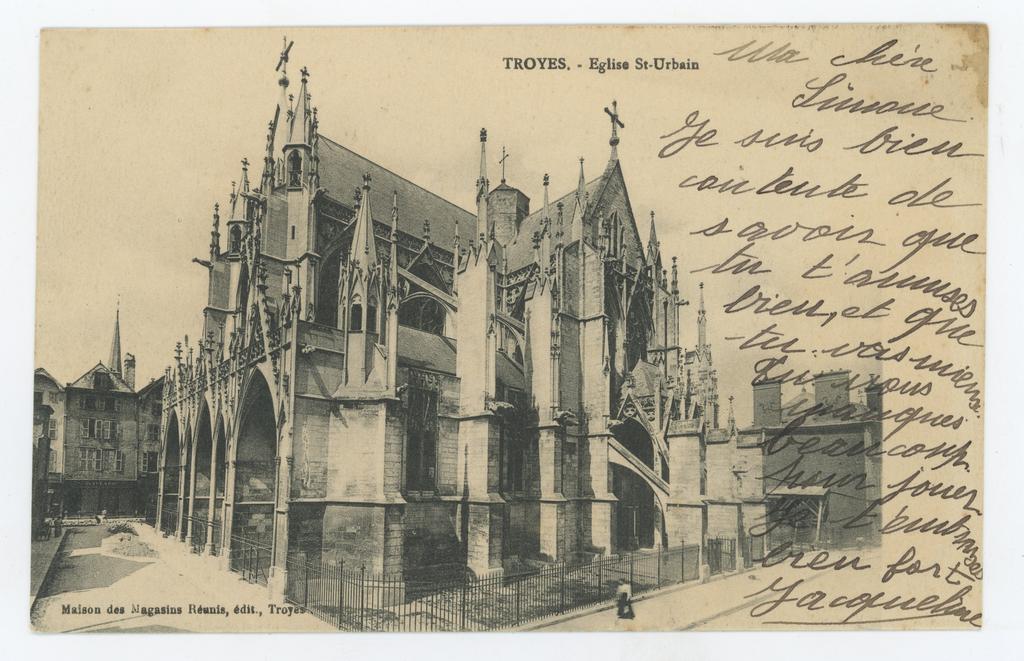 TROYES. - Eglise St-Urbain
Ma chère
Simone
Je suis bien
contente de
savoir que
tu t'amuses
bien, et que
tu vas mieux.
Tu nous
manques
beaucoup
pour jouer
Je t'embrasse
bien fort
Jacqueline
Maison des Magasins Réunis, édit., Troyes